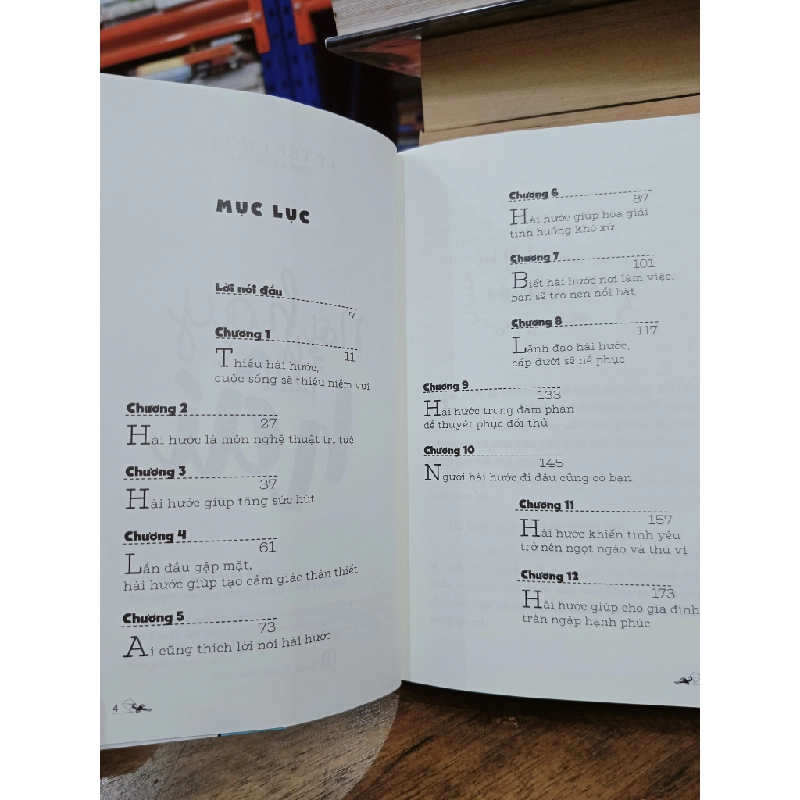 MỤC LỤC
Lời nói đầu
7
Chương 1
11
Thiếu hài hước,
cuộc sống sẽ thiếu niềm vui
Chương 2
27
Hài hước là môn nghệ thuật trí tuệ
Chương 3
37
Hài hước giúp tăng sức hút
Chương 4
61
Lần đầu gặp mặt,
hài hước giúp tạo cảm giác thân thiết
Chương 5
73
Ai cũng thích lời nói hài hước
4
Chương 6
87
Hài hước giúp hóa giải
tình huống khó xử
Chương 7
101
Biết hài hước nơi làm việc,
bạn sẽ trở nên nổi bật
Chương 8
117
Lãnh đạo hài hước,
cấp dưới sẽ nể phục
Chương 9
133
Hài hước trong đàm phán
để thuyết phục đối thủ
Chương 10
145
Người hài hước đi đâu cũng có bạn
Chương 11
157
Hài hước khiến tình yêu
trở nên ngọt ngào và thú vị
Chương 12
173
Hài hước giúp cho gia đình
tràn ngập hạnh phúc